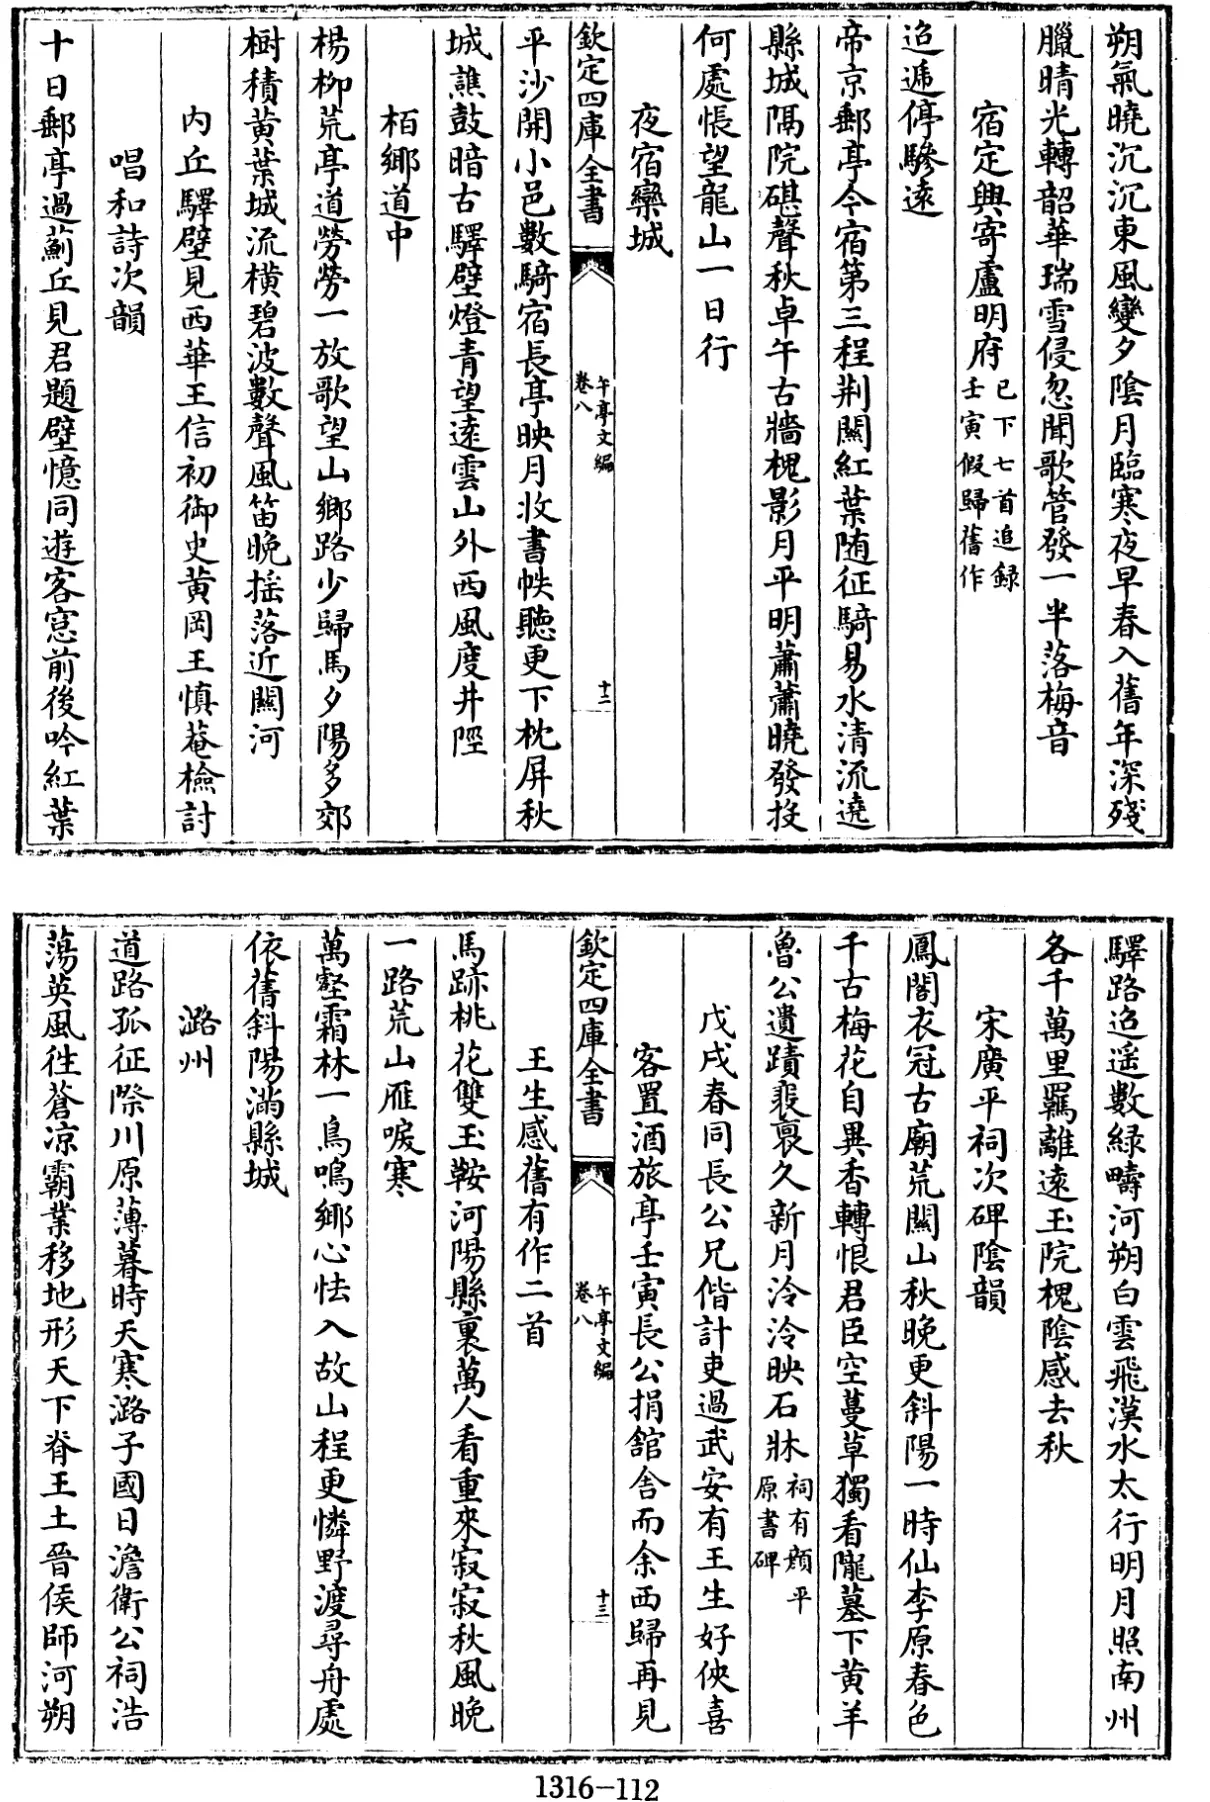 朔氣曉沉沉東風變夕陰月臨寒夜早春入舊年深殘
臘晴光轉韶華瑞雪侵忽聞歌管發一半落梅音
宿定興寄盧明府已下七首追録
壬寅假歸舊作
迢遞停驂遠
帝京郵亭今宿第三程荆關紅葉随征騎易水清流遶
縣城隔院碪聲秋卓午古牆槐影月平明蕭蕭曉發投
何處悵望龍山一日行
夜宿欒城
欽定四庫全書
午亭文編
卷八
十二
平沙開小邑數騎宿長亭映月收書帙聽更下枕屏秋
城譙鼓暗古驛壁燈青望遠雲山外西風度井陘
栢鄉道中
楊栁荒亭道勞勞一放歌望山鄉路少歸馬夕陽多郊
樹積黄葉城流横碧波數聲風笛晚摇落近關河
内丘驛壁見西華王信初御史黄岡王慎菴檢討
唱和詩次韻
十日郵亭過薊丘見君題壁憶同遊客窓前後吟紅葉
驛路迢遥數緑疇河朔白雲飛漠水太行明月照南州
各千萬里羈離遠玉院槐陰感去秋
宋廣平祠次碑陰韻
鳳閣衣冠古廟荒關山秋晚更斜陽一時仙李原春色
千古梅花自異香轉恨君臣空蔓草獨看隴墓下黄羊
魯公遺蹟裵褱久新月泠泠映石牀祠有顔平
原書碑
戊戌春同長公兄偕計吏過武安有王生好俠喜
客置酒旅亭壬寅長公捐舘舍而余西歸再見
欽定四庫全書
午亭文編
卷八
十三
王生感舊有作二首
馬跡桃花雙玉鞍河陽縣裏萬人看重來寂寂秋風晚
一路荒山雁唳寒
萬壑霜林一鳥鳴鄉心怯入故山程更憐野渡尋舟處
依舊斜陽滿縣城
潞州
道路孤征際川原薄暮時天寒潞子國日澹衛公祠浩
蕩英風徃蒼凉霸業移地形天下脊王土晉侯師河朔
1316-112